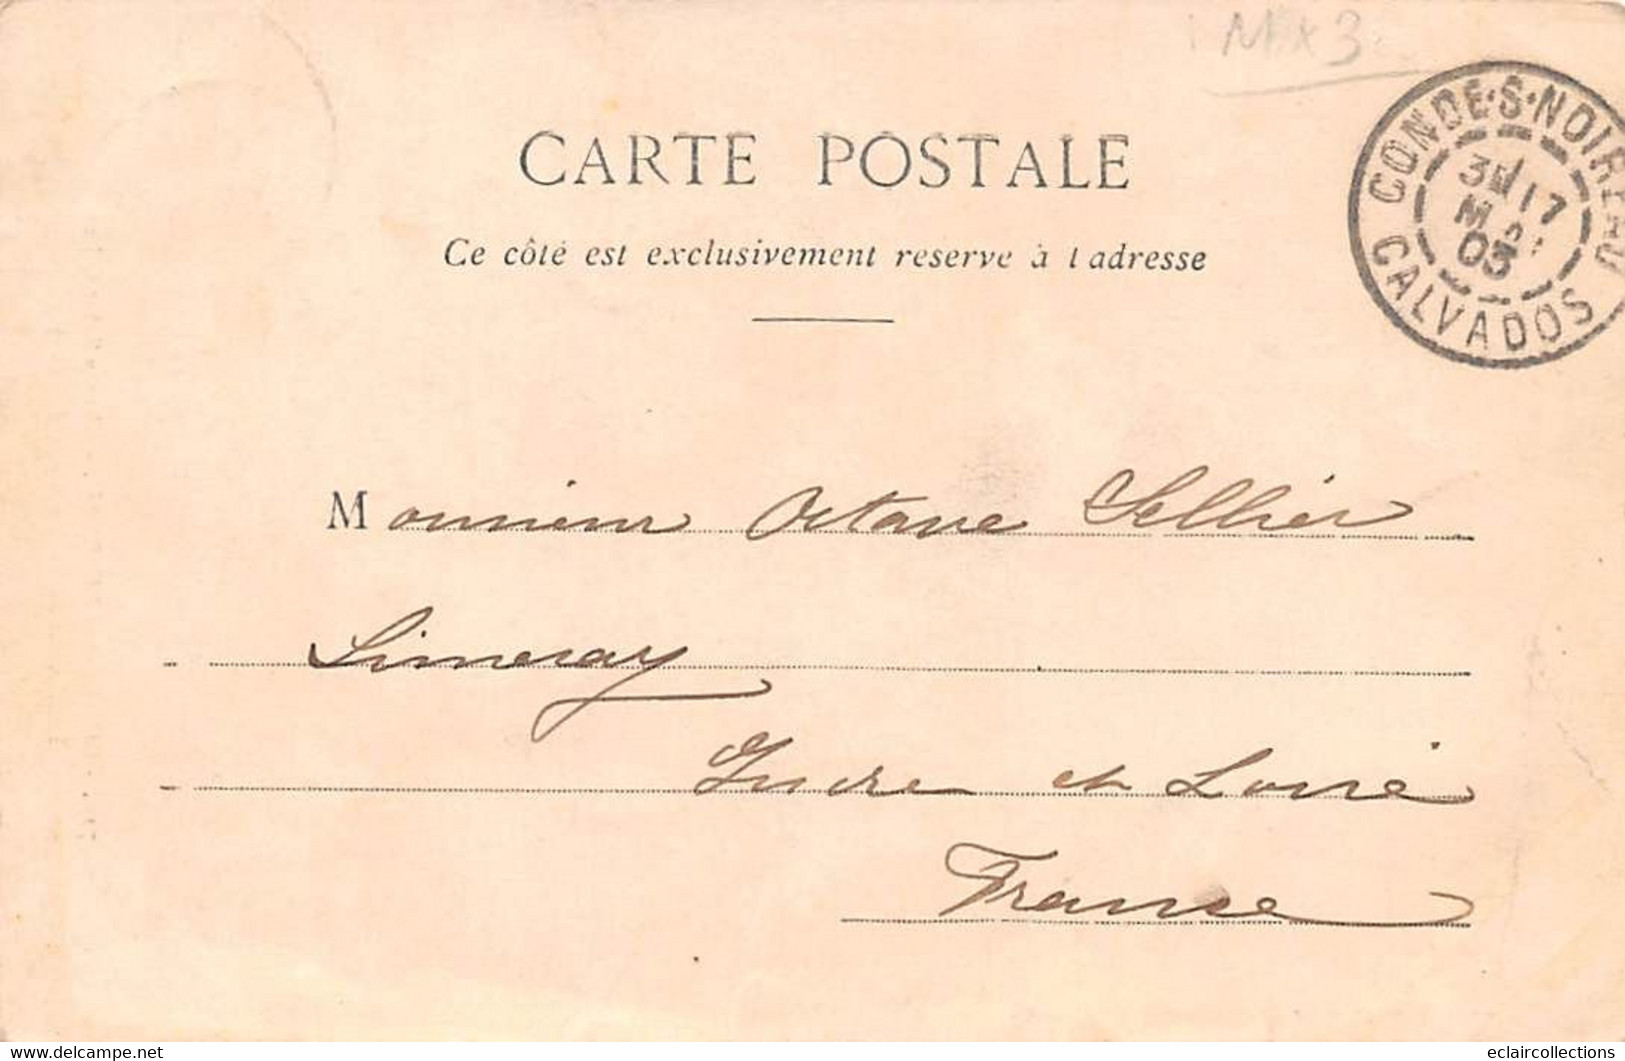 CARTE POSTALE
Ce côté est exclusivement reserve à l adresse
CONDE-S-NOIREAU
17
03
CALVADOS
Monsieur Octave Sellier
Limeray
Indre et Loire
France
eclaircollections